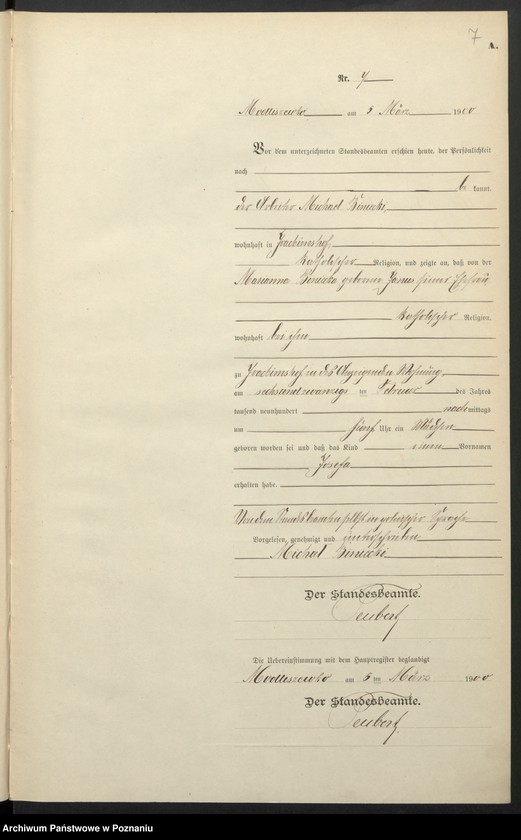 7
A.
Nr. 7
Modliszewko am 5 März 1900
Vor dem unterzeichneten Standesbeamten erschien heute, der Persönlichkeit
nach
be kannt,
der Arbeiter Michael
wohnhaft in Joachimshof
katholischer Religion, und zeigte an, daß von der
Marianna geborene seiner Ehefrau
katholischer Religion,
wohnhaft bei ihm
zu Joachimshof in des Anzeigenden Wohnung
am sechsundzwanzigs ten Februar des Jahres
tausend neunhundert nachmittags
um fünf Uhr ein Mädchen
geboren worden sei und daß das Kind einen Vornamen
Josefa
erhalten habe.
Von dem Standesbeamten selbst in polnischer Sprache
Vorgelesen, genehmigt und unterschrieben
Michał
Der Standesbeamte.
Teubert
Die Uebereinstimmung mit dem Hauptregister beglaubigt
Modliszewko am 5 ten März 1900
Der Standesbeamte.
Teubert
Archiwum Państwowe w Poznaniu